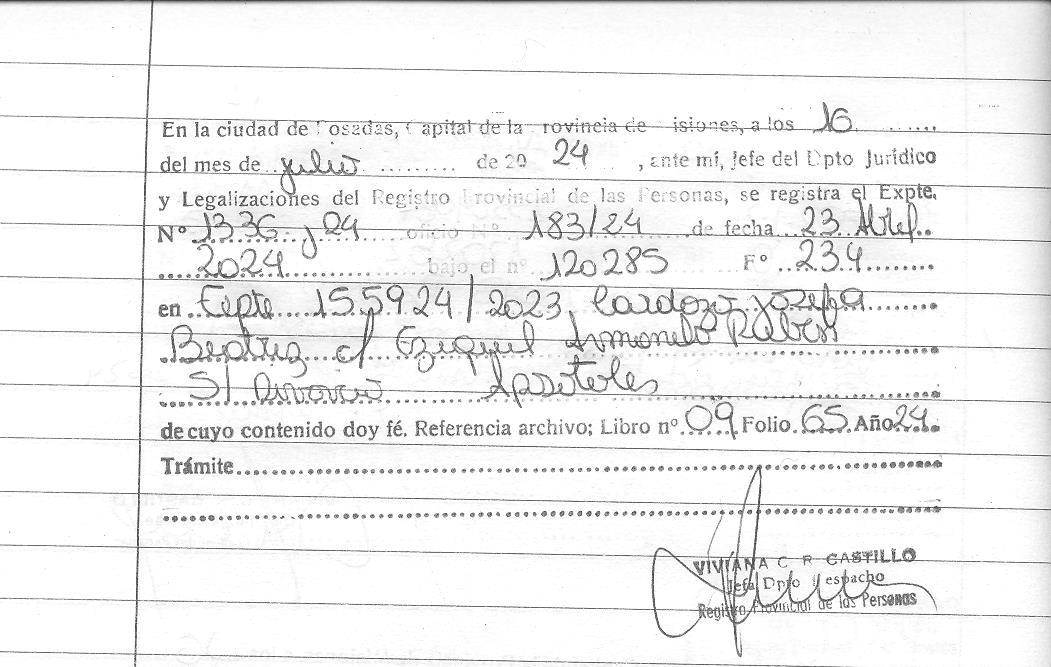 En la ciudad de Posadas, Capital de la Provincia de Misiones, a los 16
del mes de julio de 20 24, ante mí, Jefe del Dpto Jurídico
y Legalizaciones del Registro Provincial de las Personas, se registra el Expte.
N° 1336-J-24 oficio N° 183/24 de fecha 23
2024 bajo el n° 120285 F° 234
en Expte 155924/2023, Cardozo Josefa
Beatriz c/ Ezequiel Armando
S/ Divorcio Apostoles
de cuyo contenido doy fé. Referencia archivo; Libro n° 09 Folio 65 Año 24.
Trámite
VIVIANA C R CASTILLO
Jefa Dpto Despacho
Registro Provincial de las Personas